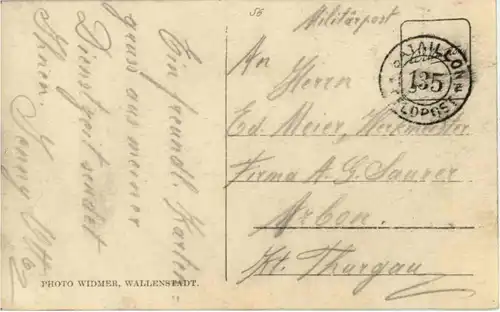 56
Militärpost
BATAILLON
135
FELDPOST
An
Herrn
Ed. Meier, Werkmeister
Firma A. G. Saurer
Arbon.
Kt. Thurgau
Ein freundl. Karten
gruss aus meiner
Dienstzeit sendet
Ihnen. Otto
PHOTO WIDMER, WALLENSTADT.